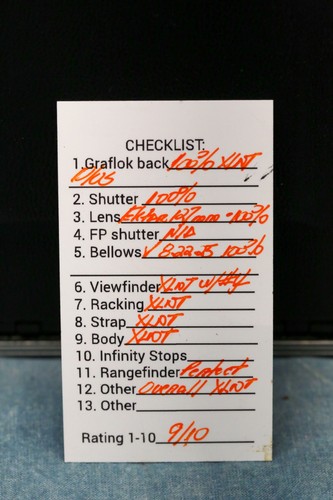 CHECKLIST:
1.Graflok back 100% XLNT
2. Shutter 100%
3. Lens Ektar 127mm - 100%
4. FP shutter N/A
5. Bellows √ 8-22-25 100%
6. Viewfinder XLNT w/
7. Racking XLNT
8. Strap XLNT
9. Body XLNT
10. Infinity Stops
11. Rangefinder Perfect
12. Other Overall XLNT
13. Other
Rating 1-10 9/10